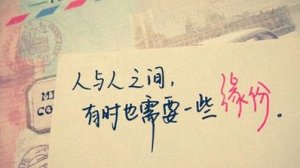 人与人之间，
有时也需要一些缘份．